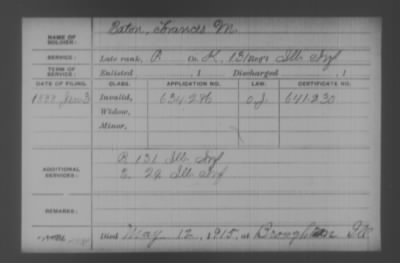 NAME OF SOLDIER: Eaton, Francis M.
SERVICE: Late rank, P Co. K, 131 Reg't Ill. Inf
TERM OF SERVICE: Enlisted , 1 Discharged , 1
DATE OF FILING. CLASS. APPLICATION NO. LAW. CERTIFICATE NO.
1888 Jan 3 Invalid, 634.286 641.230
Widow,
Minor,
ADDITIONAL SERVICES: K 131 Ill. Inf
29 Ill Inf
REMARKS:
Died May 12, 1915, at